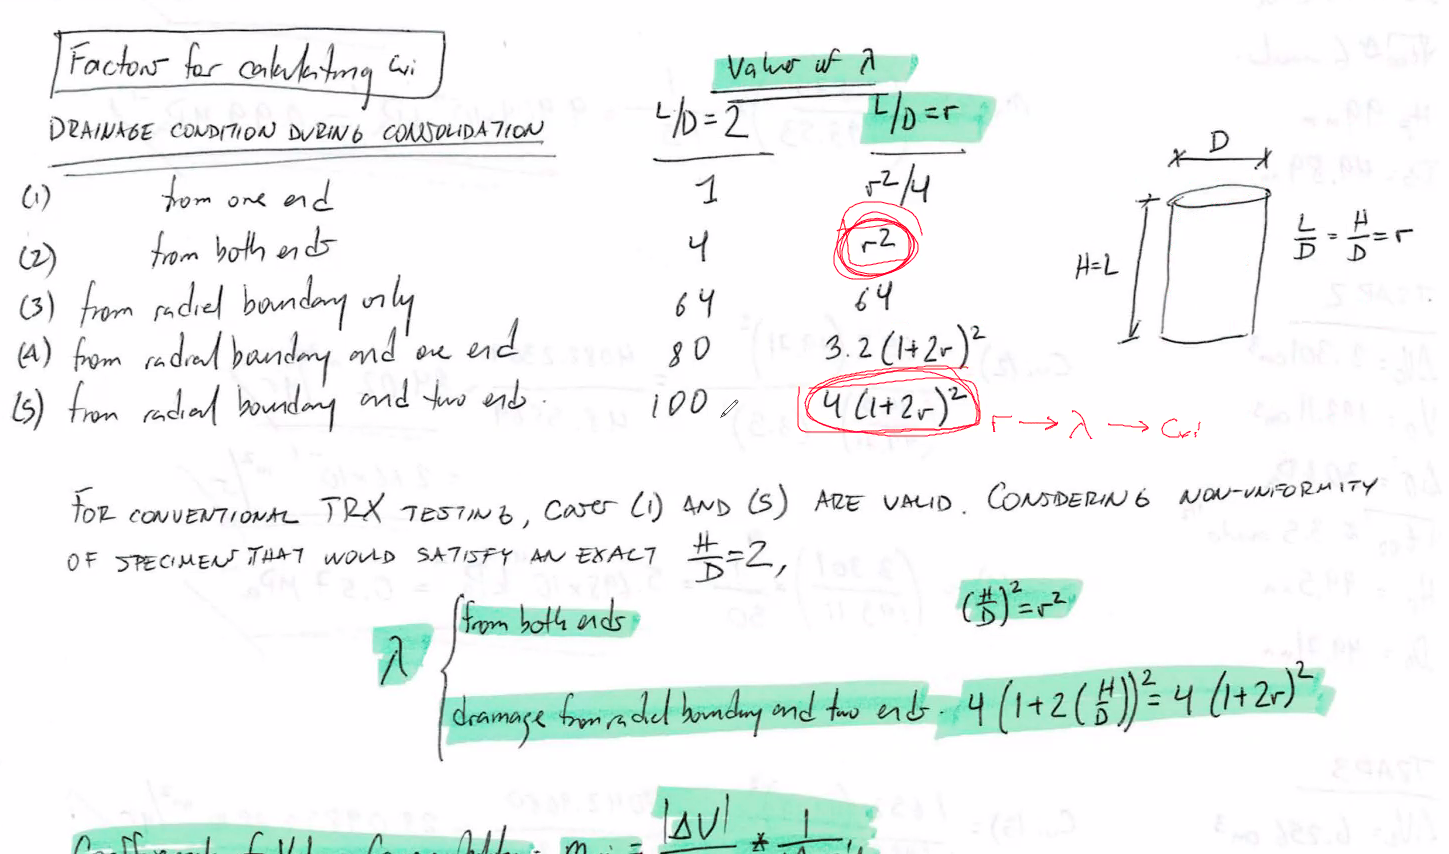 Factors for calculating cvi
Value of λ
DRAINAGE CONDITION DURING CONSOLIDATION
L/D = 2 L/D = r
(1) from one end 1 r²/4
(2) from both ends 4 r²
(3) from radial boundary only 64 64
(4) from radial boundary and one end 80 3.2 (1+2r)²
(5) from radial boundary and two ends. 100 4 (1+2r)²
r → λ → cvi
D
H=L
L/D = H/D = r
FOR CONVENTIONAL TRX TESTING, Cases (1) AND (5) ARE VALID. CONSIDERING NON-UNIFORMITY
OF SPECIMEN THAT WOULD SATISFY AN EXACT H/D = 2,
λ { from both ends (H/D)² = r²
drainage from radial boundary and two ends. 4 (1+2(H/D))² = 4 (1+2r)²
|ΔV| * 1